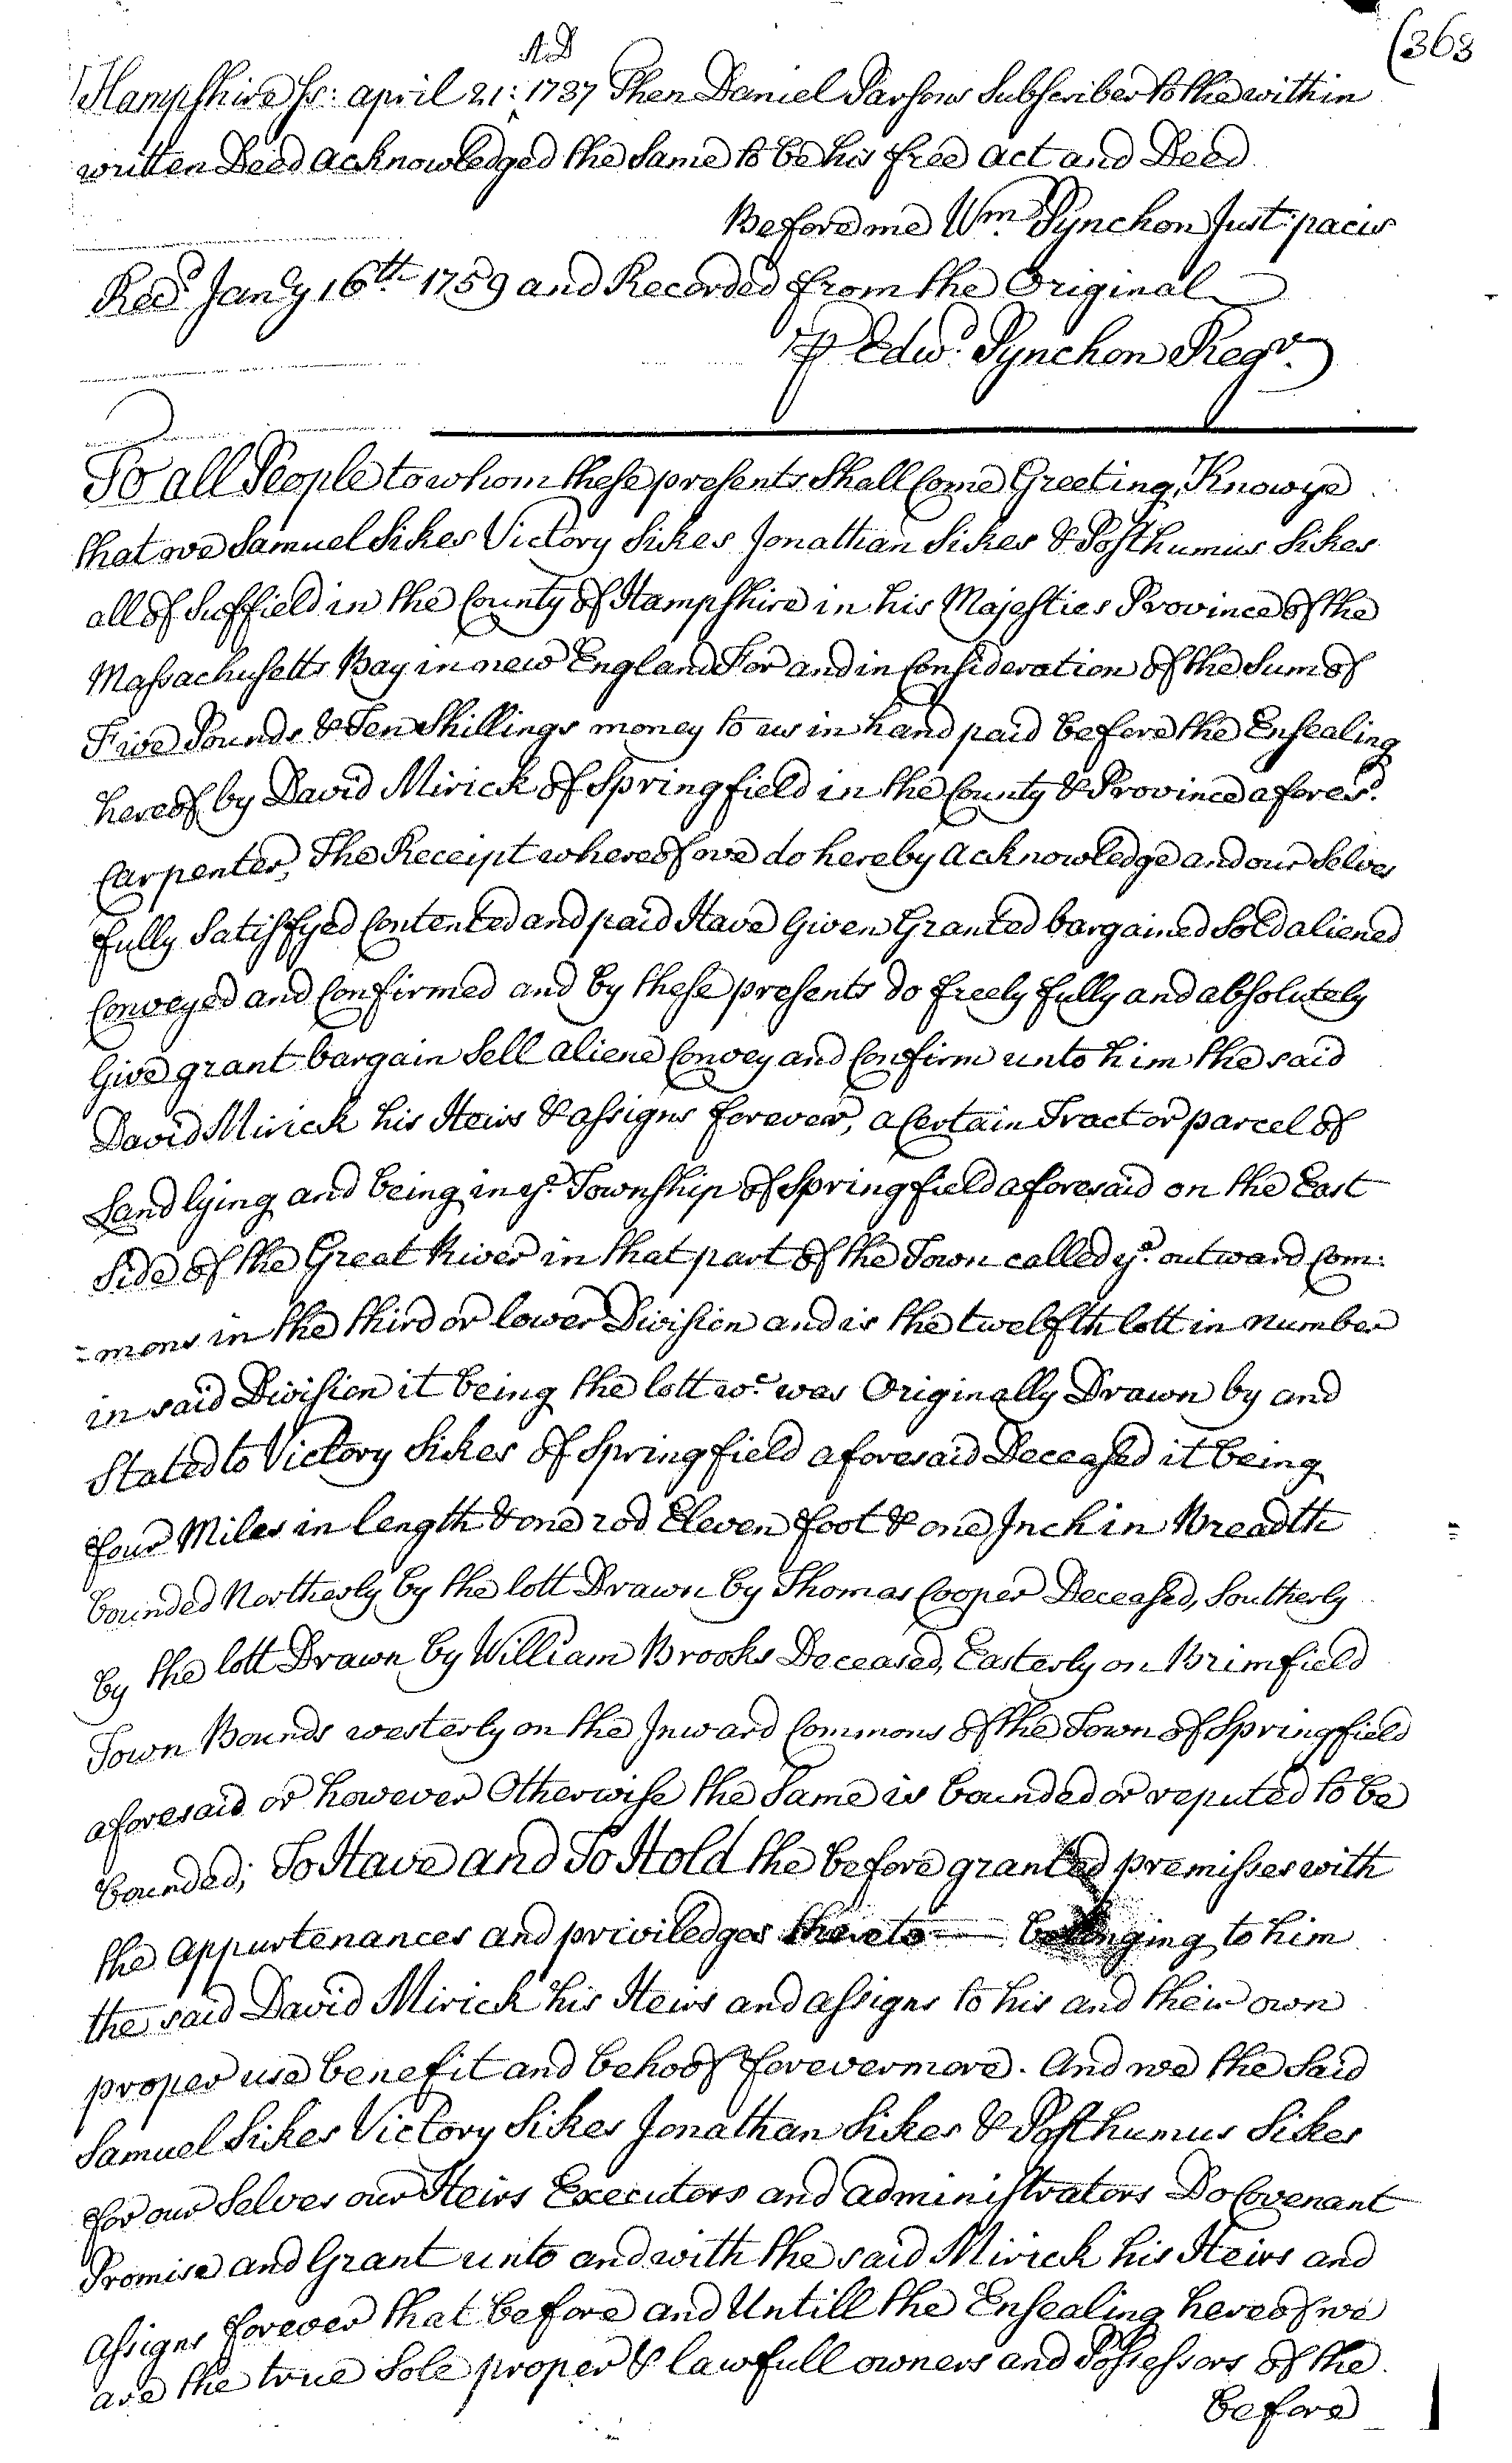 (363
Hampshire Ss: april 21: A:D 1737 Then Daniel Parsons Subscriber to the within
written Deed acknowledged the Same to be his free act and Deed
Before me Wm. Pynchon Just: pacis
Recd. Jany 16th. 1759 and Recorded from the Original
⅌ Edwd. Pynchon Regr.
To all People to whom these presents Shall Come Greeting, Know ye
that we Samuel Sikes Victory Sikes Jonathan Sikes & Posthumus Sikes
all of Suffield in the County of Hampshire in his Majesties Province of the
Massachusetts Bay in new England For and in Consideration of the Sum of
Five Pounds & Ten Shillings money to us in hand paid before the Ensealing
hereof by David Mirick of Springfield in the County & Province aforesd.
Carpenter, The Receipt whereof we do hereby acknowledge and our Selves
fully Satisfyed Contented and paid Have Given Granted bargained Sold aliened
Conveyed and Confirmed and by these presents do freely fully and absolutely
Give grant bargain Sell aliene Convey and Confirm unto him the said
David Mirick his Heirs & assigns forever, a Certain Tract or parcel of
Land lying and being in ye. Township of Springfield aforesaid on the East
Side of the Great River in that part of the Town called ye. outward Com:
=mons in the third or lower Division and is the twelfth lott in number
in said Division it being the lott wc. was Originally Drawn by and
Stated to Victory Sikes of Springfield aforesaid Deceased it being
four Miles in length & one rod Eleven foot & one Inch in Breadth
bounded Northerly by the lott Drawn by Thomas Cooper Deceased, Southerly
by the lott Drawn by William Brooks Deceased, Easterly on Brimfield
Town Bounds westerly on the Inward Commons of the Town of Springfield
aforesaid or however Otherwise the Same is bounded or reputed to be
bounded; To Have and To Hold the before granted premisses with
the appurtenances and priviledges thereto belonging to him
the said David Mirick his Heirs and assigns to his and their own
proper use benefit and behoof forevermore. And we the Said
Samuel Sikes Victory Sikes Jonathan Sikes & Posthumus Sikes
for our Selves our Heirs Executors and administrators Do Covenant
Promise and Grant unto and with the said Mirick his Heirs and
assigns forever that before and Untill the Ensealing hereof we
are the true Sole proper & lawfull owners and Possessors of the
before